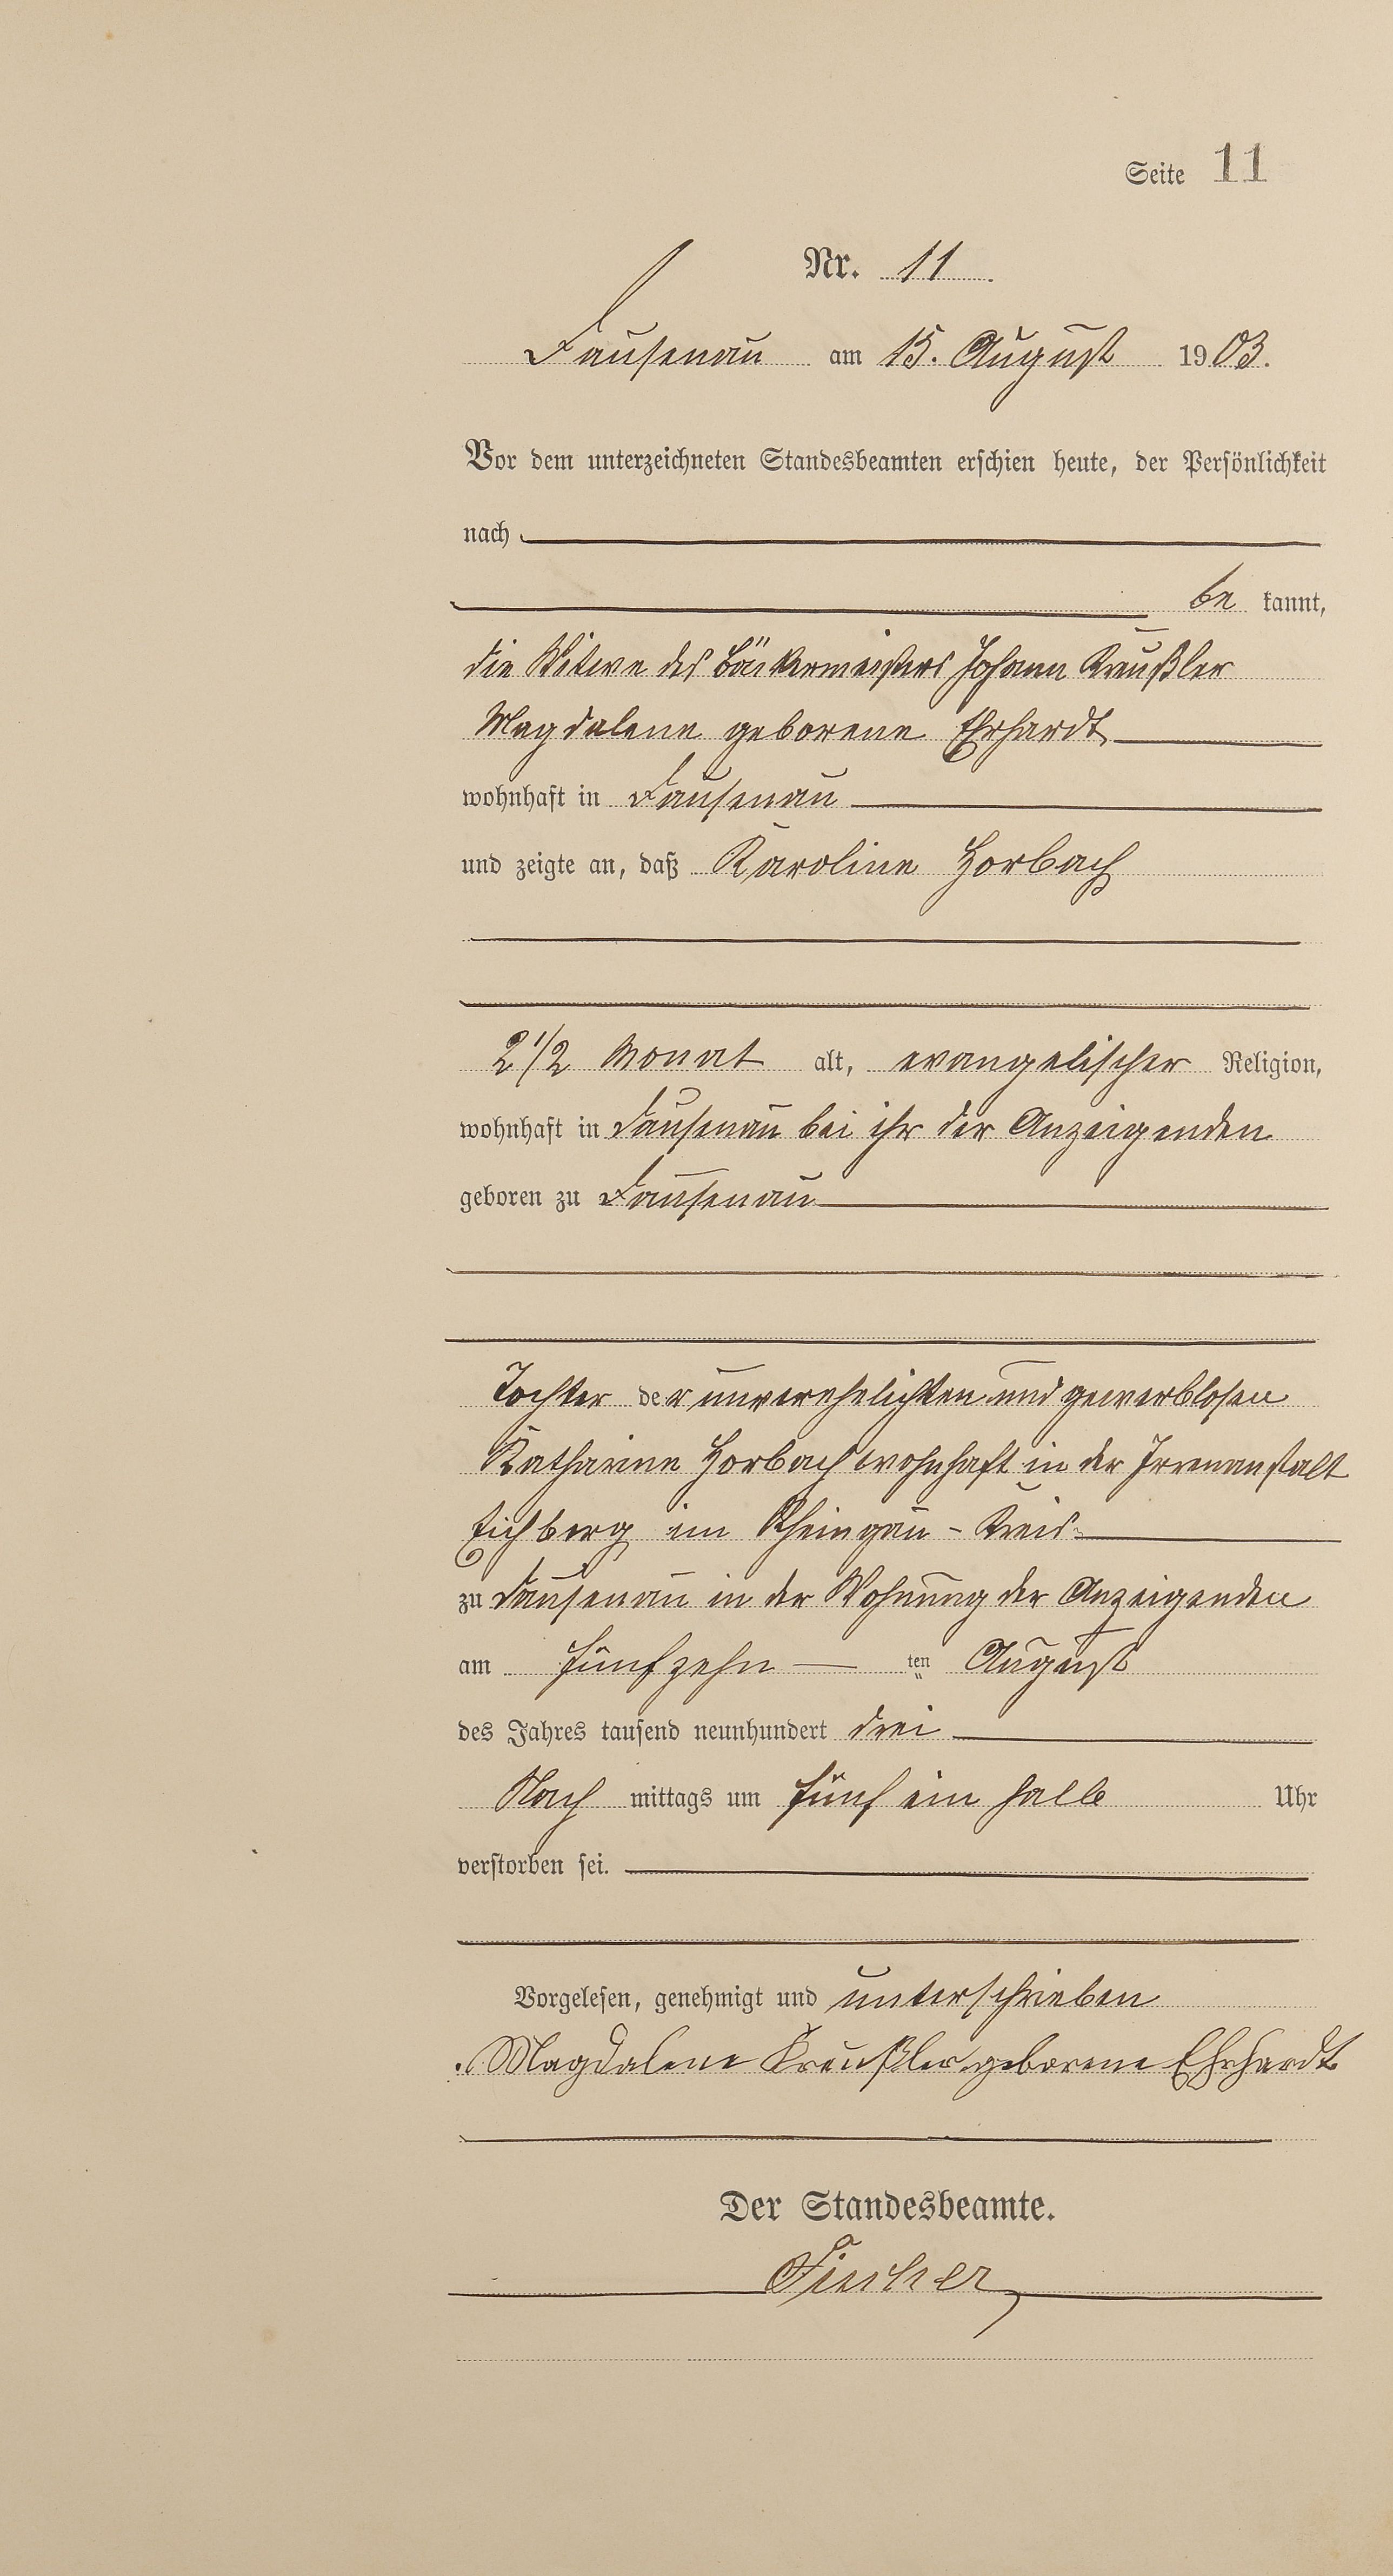 Seite 11
Nr. 11
Dausenau am 15. August 1903.
Vor dem unterzeichneten Standesbeamten erschien heute, der Persönlichkeit
nach
be kannt,
die Witwe des Bäckermeisters Johann Kreußler
Magdalene geborene Ehrhardt
wohnhaft in Dausenau
und zeigte an, daß Karoline Horbach
2 1/2 Monat alt, evangelischer Religion,
wohnhaft in Dausenau bei ihr der Anzeigenden
geboren zu Dausenau
Tochter der unverehelichten und gewerblosen
Katharine Horbach wohnhaft in der Irrenanstalt
Eichberg im Rheingau-Kreis
zu Dausenau in der Wohnung der Anzeigenden
am fünfzehn ten August
des Jahres tausend neunhundert drei
Nach mittags um fünf ein halb Uhr
verstorben sei.
Vorgelesen, genehmigt und unterschrieben
Magdalene Kreußler geborene Ehrhardt
Der Standesbeamte.